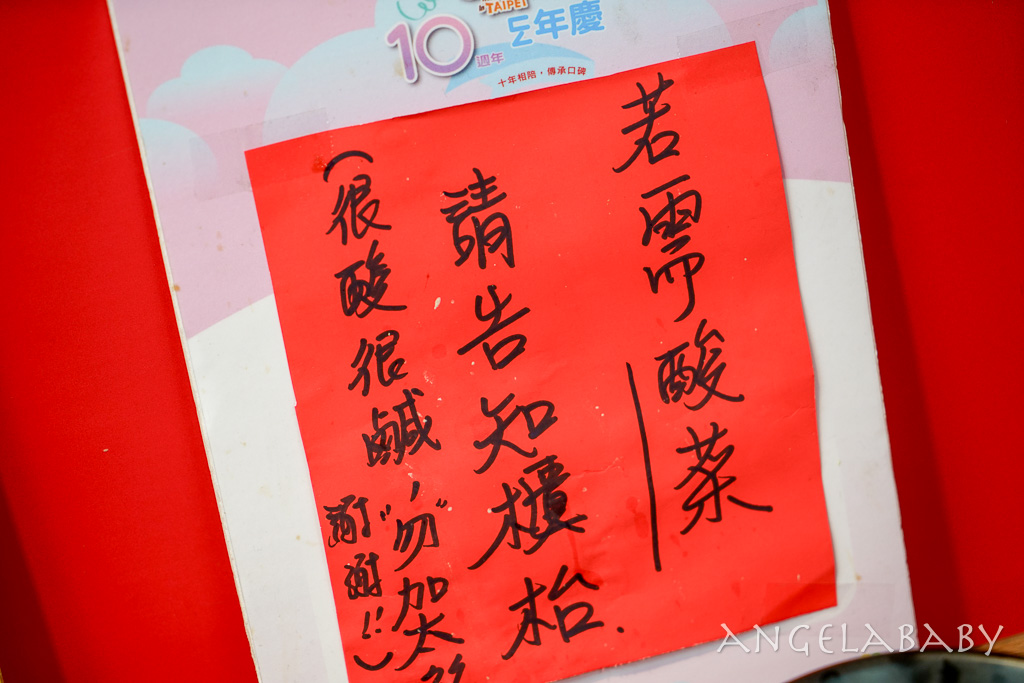 TAIPEI
10週年
年慶
十年相陪，傳承口碑
若需酸菜
請告知櫃枱.
(很酸很鹹，"勿"加太多
謝謝!!)
ANGELABABY